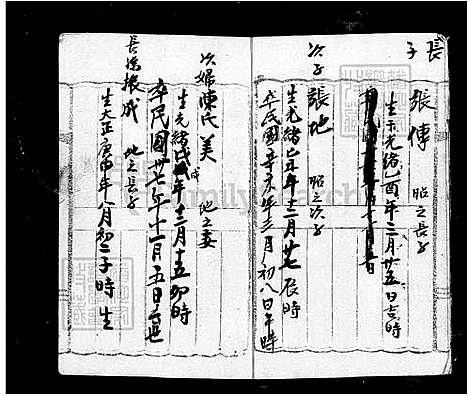 長子
張傳 昭之長子
生于光緒乙酉年三月廿五日吉時
次子 張地 昭之次子
生光緒己丑年十二月廿七辰時
卒民國辛未年三月初八日午時
次婦陳氏美 地之妻
生光緒戊戌年十二月十五卯時
卒民國廿七年十一月五日
長孫振成 地之長子
生大正庚申年八月初二子時生
FamilySearch